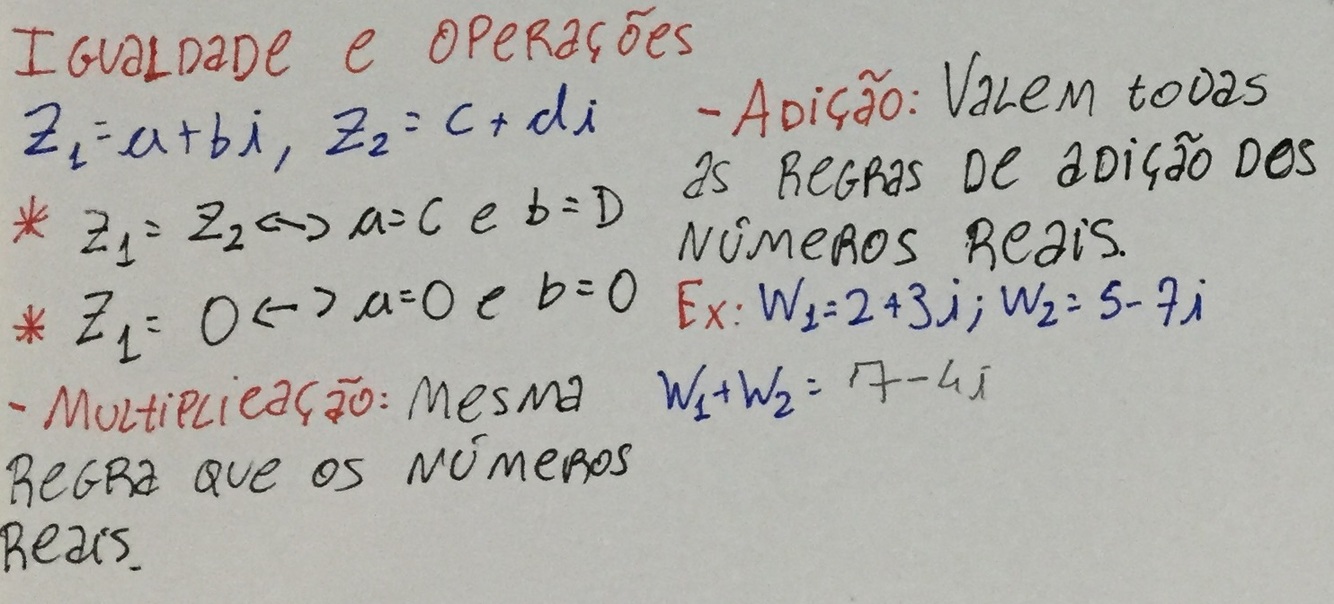 Igualdade e operações
Z₁=a+bi, Z₂=c+di
* Z₁=Z₂<->a=C e b=D
* Z₁=0<->a=0 e b=0
- Multiplicação: Mesma
Regra que os números
Reais.
- Adição: Valem todas
as Regras de adição dos
números Reais.
Ex: W₁=2+3i; W₂=5-7i
W₁+W₂=7-4i